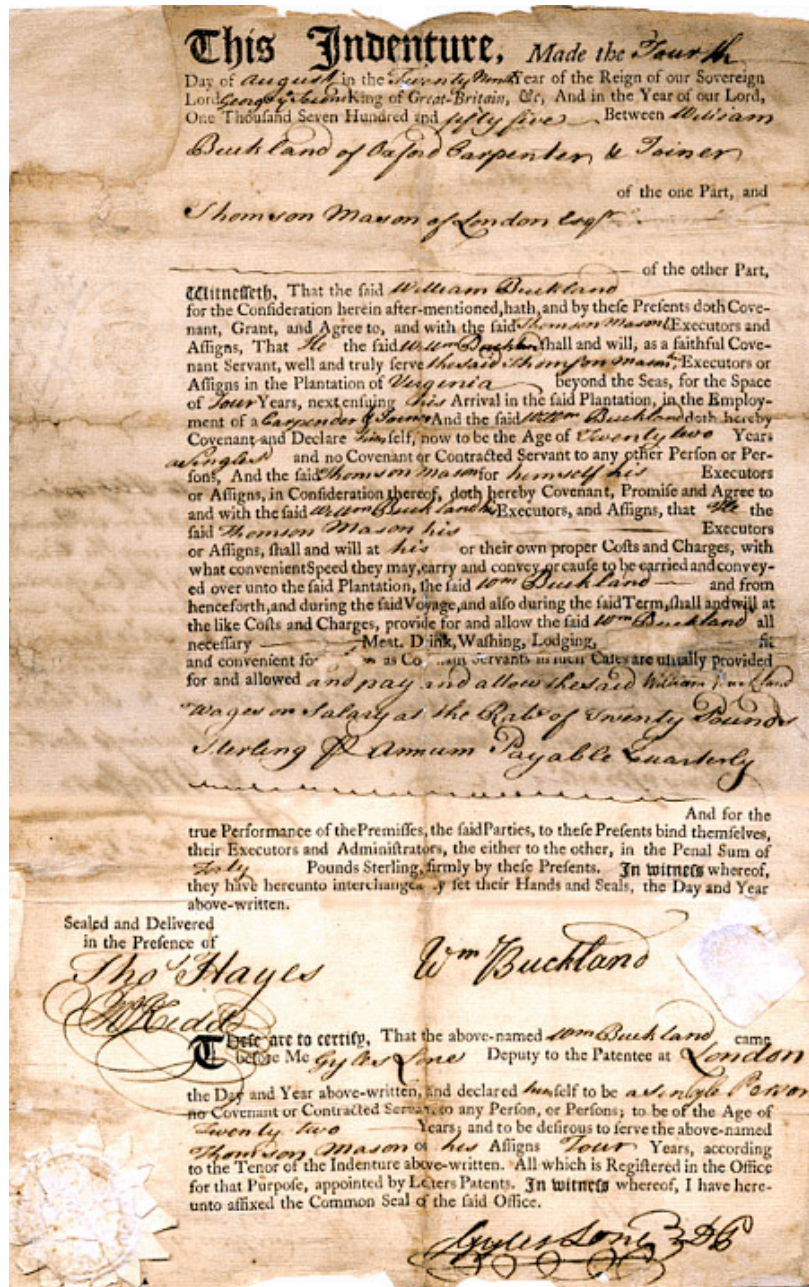 This Indenture, Made the Fourth
Day of August in the Twenty Ninth Year of the Reign of our Sovereign
Lord George Second King of Great-Britain, &c, And in the Year of our Lord,
One Thousand Seven Hundred and fifty five Between William
Buckland of Oxford Carpenter & Joiner
of the one Part, and
Thomson Mason of London Esqr.
of the other Part,
Witnesseth, That the said William Buckland
for the Consideration herein after-mentioned, hath, and by these Presents doth Cove-
nant, Grant, and Agree to, and with the said Thomson Mason Executors and
Assigns, That He the said Wm Buckland shall and will, as a faithful Cove-
nant Servant, well and truly serve the said Thomson Mason Executors or
Assigns in the Plantation of Virginia beyond the Seas, for the Space
of Four Years, next ensuing his Arrival in the said Plantation, in the Employ-
ment of a Carpender & Joiner And the said Wm Buckland doth hereby
Covenant and Declare himself, now to be the Age of Twenty two Years
a Single and no Covenant or Contracted Servant to any other Person or Per-
sons, And the said Thomson Mason for himself his Executors
or Assigns, in Consideration thereof, doth hereby Covenant, Promise and Agree to
and with the said Wm Buckland his Executors, and Assigns, that He the
said Thomson Mason his Executors
or Assigns, shall and will at his or their own proper Costs and Charges, with
what convenient Speed they may, carry and convey or cause to be carried and convey-
ed over unto the said Plantation, the said Wm Buckland and from
henceforth, and during the said Voyage, and also during the said Term, shall and will at
the like Costs and Charges, provide for and allow the said Wm Buckland all
necessary Meat, Drink, Washing, Lodging, fit
and convenient for as Covenant Servants in such Cases are usually provided
for and allowed and pay and allow the said William Buckland
Wages or Salary at the Rate of Twenty Pounds
Sterling P Annum Payable Quarterly
And for the
true Performance of the Premisses, the said Parties, to these Presents bind themselves,
their Executors and Administrators, the either to the other, in the Penal Sum of
Forty Pounds Sterling, firmly by these Presents. In witness whereof,
they have hereunto interchangeably set their Hands and Seals, the Day and Year
above-written.
Sealed and Delivered
in the Presence of
Thos Hayes
Wm Buckland
These are to certify, That the above-named Wm Buckland came
before Me Gyles Lone Deputy to the Patentee at London
the Day and Year above-written, and declared himself to be a single Person
no Covenant or Contracted Servant to any Person, or Persons; to be of the Age of
Twenty two Years; and to be desirous to serve the above-named
Thomson Mason or his Assigns Four Years, according
to the Tenor of the Indenture above-written. All which is Registered in the Office
for that Purpose, appointed by Letters Patents. In witness whereof, I have here-
unto affixed the Common Seal of the said Office.
Gyles Lone